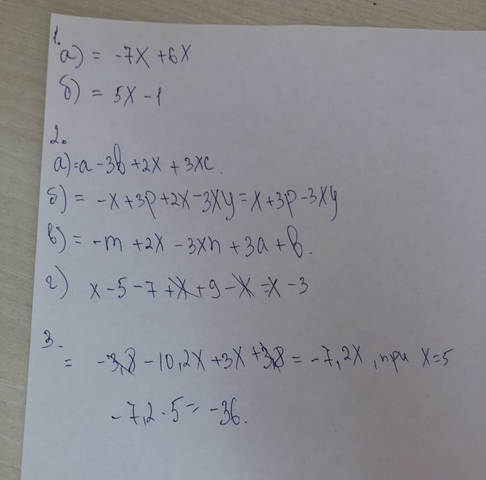 1.
а) = -7x + 6x
б) = 5x - 1
2.
а) = a - 3b + 2x + 3xc.
б) = -x + 3p + 2x - 3xy = x + 3p - 3xy
в) = -m + 2x - 3xn + 3a + b.
г) x - 5 - 7 + x + 9 - x = x - 3
3.
= -3,8 - 10,2x + 3x + 3,8 = -7,2x, при x = 5
-7,2 · 5 = -36.